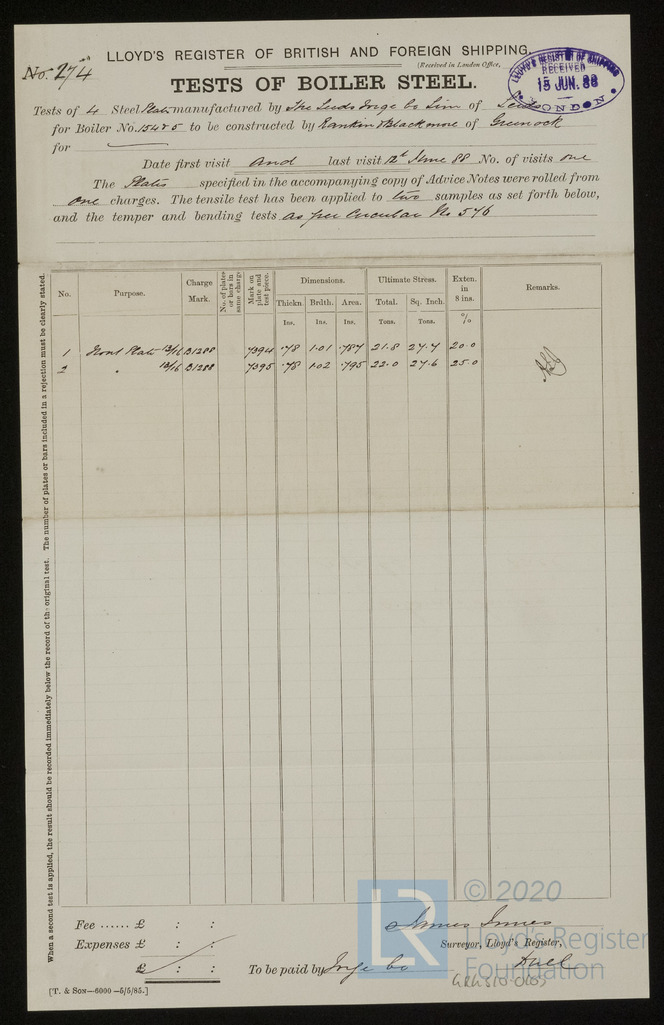 LLOYD'S REGISTER OF BRITISH AND FOREIGN SHIPPING.
No. 274
(Received in London Office,
LLOYD'S REGISTER OF SHIPPING
RECEIVED
15 JUN. 88
LONDON
TESTS OF BOILER STEEL.
Tests of 4 Steel Plates manufactured by The Leeds Forge Co Lim of Leeds
for Boiler No. 15485 to be constructed by Rankin & Blackmore of Greenock
for
Date first visit and last visit 12th June 88 No. of visits one
The Plates specified in the accompanying copy of Advice Notes were rolled from
one charges. The tensile test has been applied to two samples as set forth below,
and the temper and bending tests as per Circular No 576
When a second test is applied, the result should be recorded immediately below the record of the original test. The number of plates or bars included in a rejection must be clearly stated.
No. Purpose. Charge Mark. No. of plates or bars in same charge Mark on plate and test piece. Dimensions. Ultimate Stress. Exten. in 8 ins. Remarks.
Thickn. Brdth. Area. Total. Sq. Inch.
Ins. Ins. Ins. Tons. Tons. %
1 Front Plate 13/16 B1288 7394 .78 1.01 .787 21.8 27.7 20.0
2 " 13/16 B1288 7395 .78 1.02 .795 22.0 27.6 25.0
Fee ...... £ : :
Expenses £ : :
£ : :
James Innes
Surveyor, Lloyd's Register,
To be paid by Forge Co Hull
[T. & SON—6000—5/5/85.]
LR © 2020
Lloyd's Register
Foundation